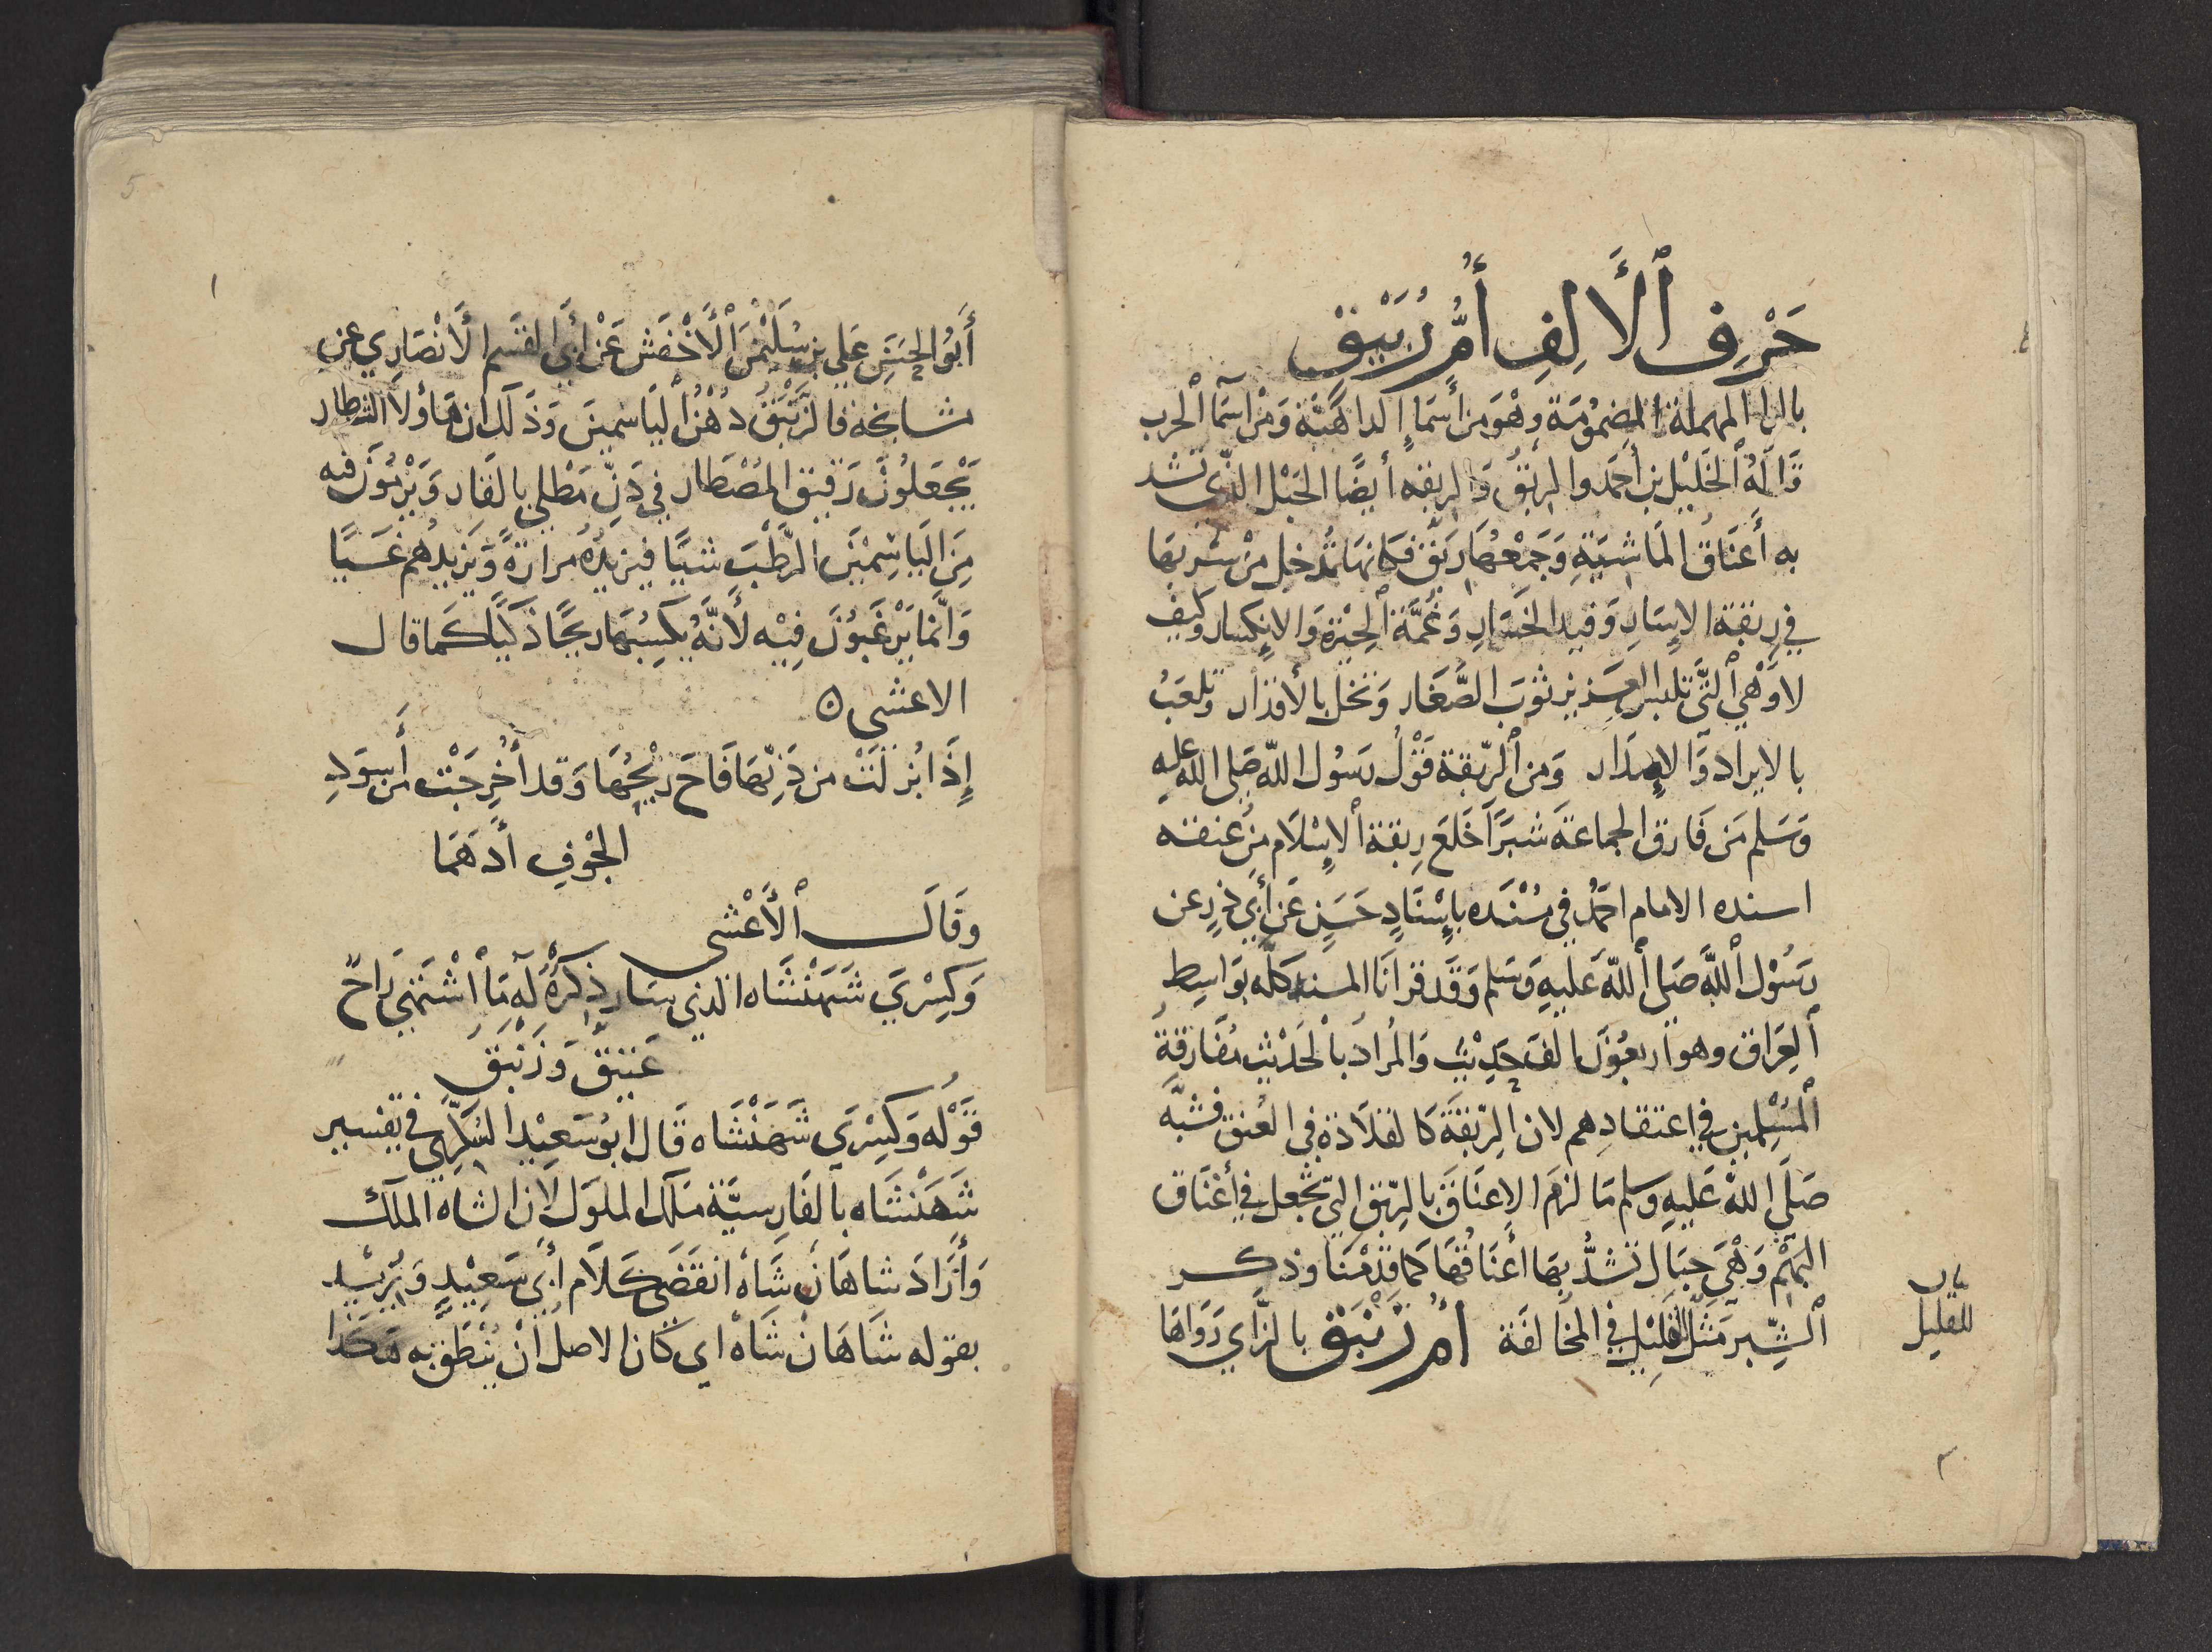 حَرْفِ ٱلْأَلِفِ أُمُّ رُبَيْقْ
بالرا المهملة المضمومَة وهْوَ من أسمَاءِ الداهيَّة وَمن اسمَآ ٱلحرب
قَالَهُ ٱلخَليْل بن أحمَد والربْقُ وَالربقه أيضًا الحَبْل الذى تشد
به أَعنَاقُ المَاشيَةِ وَجَمعُهَا ربَقٌ فكانهَا تُدخِل من شربهَا
في رِبْقةِ الإسَارِ وَقيد الخَسَارِ وَغُمَّة ٱلحِيْرَة وَالإنكسار وكيف
لا وَهْي ٱلتَّى تلبس العزيز ثوبَ الصُّغَار وَتخل بالأقدار وتلعَبُ
بالايراد وَالإصدَار وَمن ٱلرّبقة قَوْلُ رسُول اللّه صَلى اللّه عليهِ
وَسَلم مَن فَارق الجماعَة شبرًا خَلعَ رِبقة ٱلإسْلَام مِن عنقه
اسنده الامام احمَد في مسْنَده بإسْنَادٍ حَسَنٍ عَن أبي ذرٍ عن
رسُوْل ٱللَّه صَلى ٱللّه عَليهِ وَسَلم وَقَد قرانَا المسند كله بوَاسِط
ٱلعِرَاق وهو اربعُوْن الف حَدِيْث وَالمُرادُ بٱلحَدْيث مفَارقةُ
ٱلمسْلمين في اعتقادِهم لان ٱلرّبقَة كَالقلَادَة في العُنق فشبَّه
صَلَى اللهُ عَليهِ وسلم مَا لزمَ الاعنَاقَ بالرّبق التي تجْعل في أعْنَاق
البَهْم وَهْيَ حِبَال تشدُّ بهَا أعنَاقُهَا كمَا قدمْنَا وذكر
ٱلشّبر مَثَل للقليْل في المخَالفَة أم زَنْبَق بالزَّاي رَوَاهَا
للقليل
أَبُو الحَسَن عَلي بن سُلَيْمٰنَ ٱلْأَخْفَش عَنْ أبى القسم الأَنْصَارِي عن
مشايخه فالزَّنْبَقُ دُهْنُ اليَاسمين وَذَلك ان هَاؤلا الشطار
يَجْعَلونَ رَقيق المُصْطَار في دَنّ مَطْلى بالقَار وَيَرْمُوْنَ فيه
مِنَ اليَاسِمْيَن الرَّطْبَ شيًا فيزيدُهُ مَرارَةً وَيَزيدُهم غَسيًا
وَانَّمَا يَرْغَبُوْنَ فِيْه لأنَّهُ يكسِبُهَا ريحًا ذكيًا كَمَا قال
الاعشى ٥
إِذَا بُزلَتْ من دَنّهَا فَاحَ ريْحُهَا وَقد أُخْرِجَتْ من أَسوَدِ
الجْوْفِ أدهَمَا
وَقَالَ ٱلْأَعْشى
وَكِسْرَي شَهَنْشَاه الذي سَار ذِكرُهُ لَه مَا ٱشْتَهي رَاحٌ
عَتيقٌ وَزَنْبَقُ
قَوْله وَكِسْرَي شَهَنْشَاه قَال ابوُ سَعِيْد السُّكَّري في تفسير
شَهَنْشَاه بالفَارِسيَّة مَلك الملوك لأن الشاه الملك
وَأرَادَ شاهَان شَاه انقَضى كَلَام أبي سَعِيْدٍ وَيُريْد
بقوله شَاهَانْ شَاه اي كان الاصلُ أنْ يُنْطَقَ به هكَذا